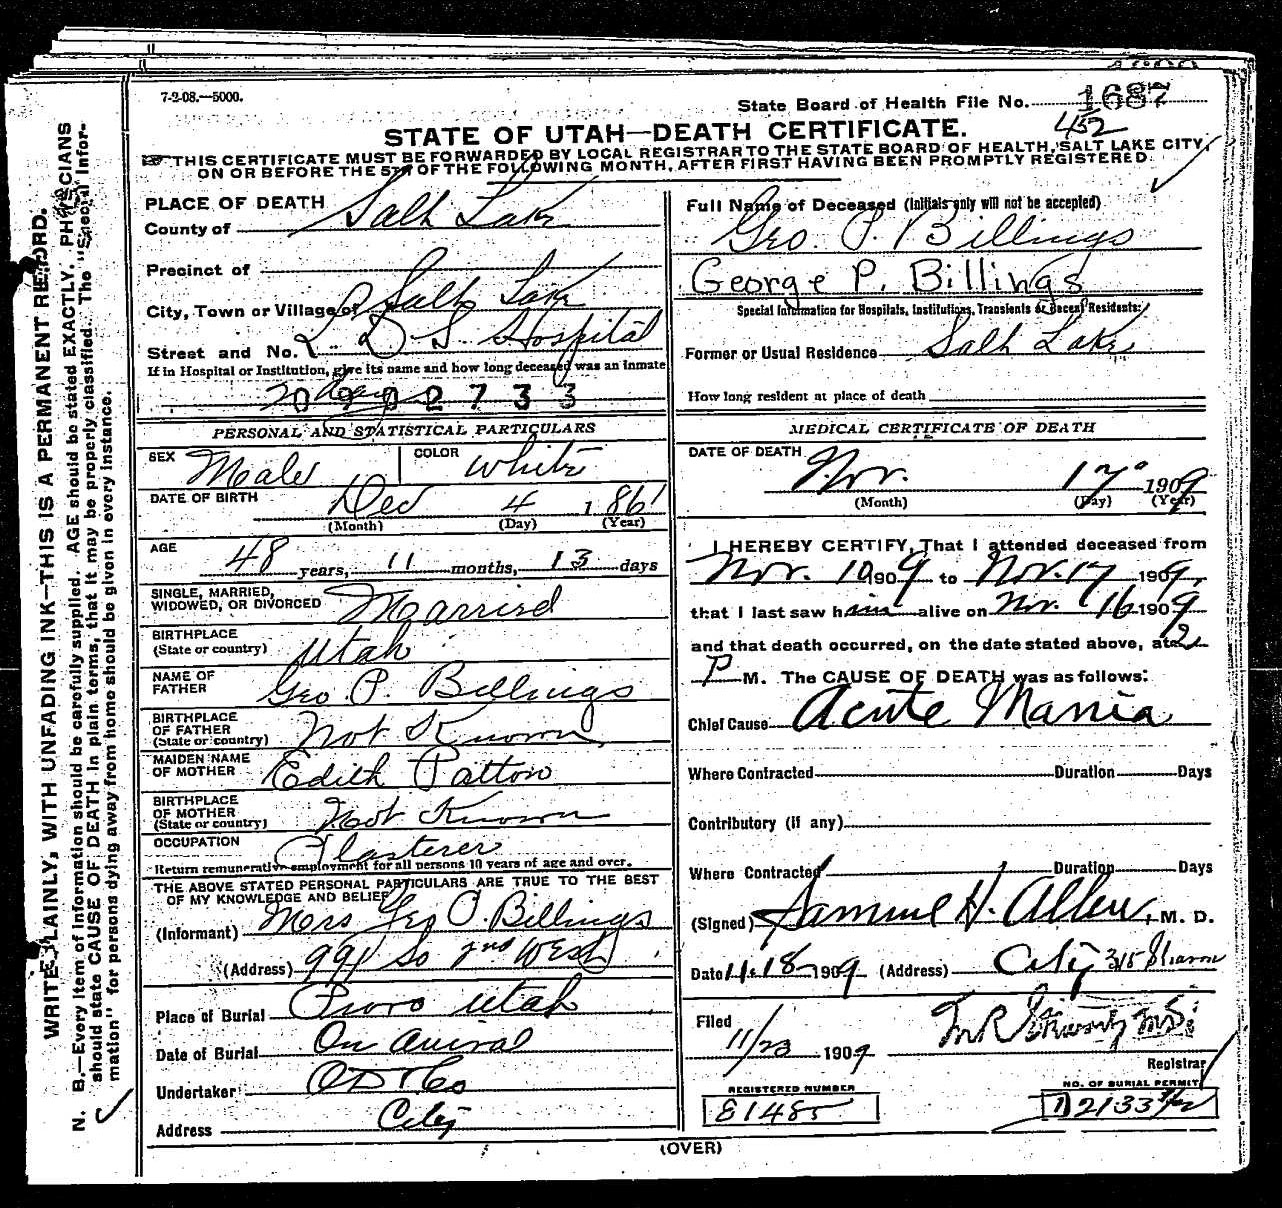 7-2-08.—5000.
State Board of Health File No. 1687
452
STATE OF UTAH—DEATH CERTIFICATE.
THIS CERTIFICATE MUST BE FORWARDED BY LOCAL REGISTRAR TO THE STATE BOARD OF HEALTH, SALT LAKE CITY,
ON OR BEFORE THE 5TH OF THE FOLLOWING MONTH, AFTER FIRST HAVING BEEN PROMPTLY REGISTERED.
WRITE PLAINLY, WITH UNFADING INK—THIS IS A PERMANENT RECORD.
N. B.—Every item of information should be carefully supplied. AGE should be stated EXACTLY. PHYSICIANS
should state CAUSE OF DEATH in plain terms, that it may be properly classified. The "Special Infor-
mation" for persons dying away from home should be given in every instance.
PLACE OF DEATH
County of Salt Lake
Precinct of
City, Town or Village of Salt Lake
Street and No. L. D. S. Hospital
If in Hospital or Institution, give its name and how long deceased was an inmate
days
0902733
PERSONAL AND STATISTICAL PARTICULARS
SEX Male COLOR White
DATE OF BIRTH Dec 4 1861
(Month) (Day) (Year)
AGE 48 years, 11 months, 13 days
SINGLE, MARRIED,
WIDOWED, OR DIVORCED Married
BIRTHPLACE
(State or country) Utah
NAME OF
FATHER Geo. P. Billings
BIRTHPLACE
OF FATHER
(State or country) Not Known
MAIDEN NAME
OF MOTHER Edith Patton
BIRTHPLACE
OF MOTHER
(State or country) Not Known
OCCUPATION Plasterer
Return remunerative employment for all persons 10 years of age and over.
THE ABOVE STATED PERSONAL PARTICULARS ARE TRUE TO THE BEST
OF MY KNOWLEDGE AND BELIEF
(Informant) Mrs Geo P. Billings
(Address) 991 So 2nd West
Place of Burial Provo Utah
Date of Burial On arival
Undertaker
Address City
Full Name of Deceased (Initials only will not be accepted)
Geo. P. Billings
George P. Billings
Special Information for Hospitals, Institutions, Transients or Recent Residents:
Former or Usual Residence Salt Lake
How long resident at place of death
MEDICAL CERTIFICATE OF DEATH
DATE OF DEATH Nov. 17 1909
(Month) (Day) (Year)
I HEREBY CERTIFY, That I attended deceased from
Nov. 10 1909 to Nov. 17 1909,
that I last saw him alive on Nov. 16 1909
and that death occurred, on the date stated above, at 2
P M. The CAUSE OF DEATH was as follows:
Chief Cause Acute Mania
Where Contracted Duration Days
Contributory (if any)
Where Contracted Duration Days
(Signed) Samuel H. Allen, M. D.
Date 11-18 1909 (Address) City 315
Filed
11/23 1909
Registrar
REGISTERED NUMBER
E1485
NO. OF BURIAL PERMIT
(OVER)